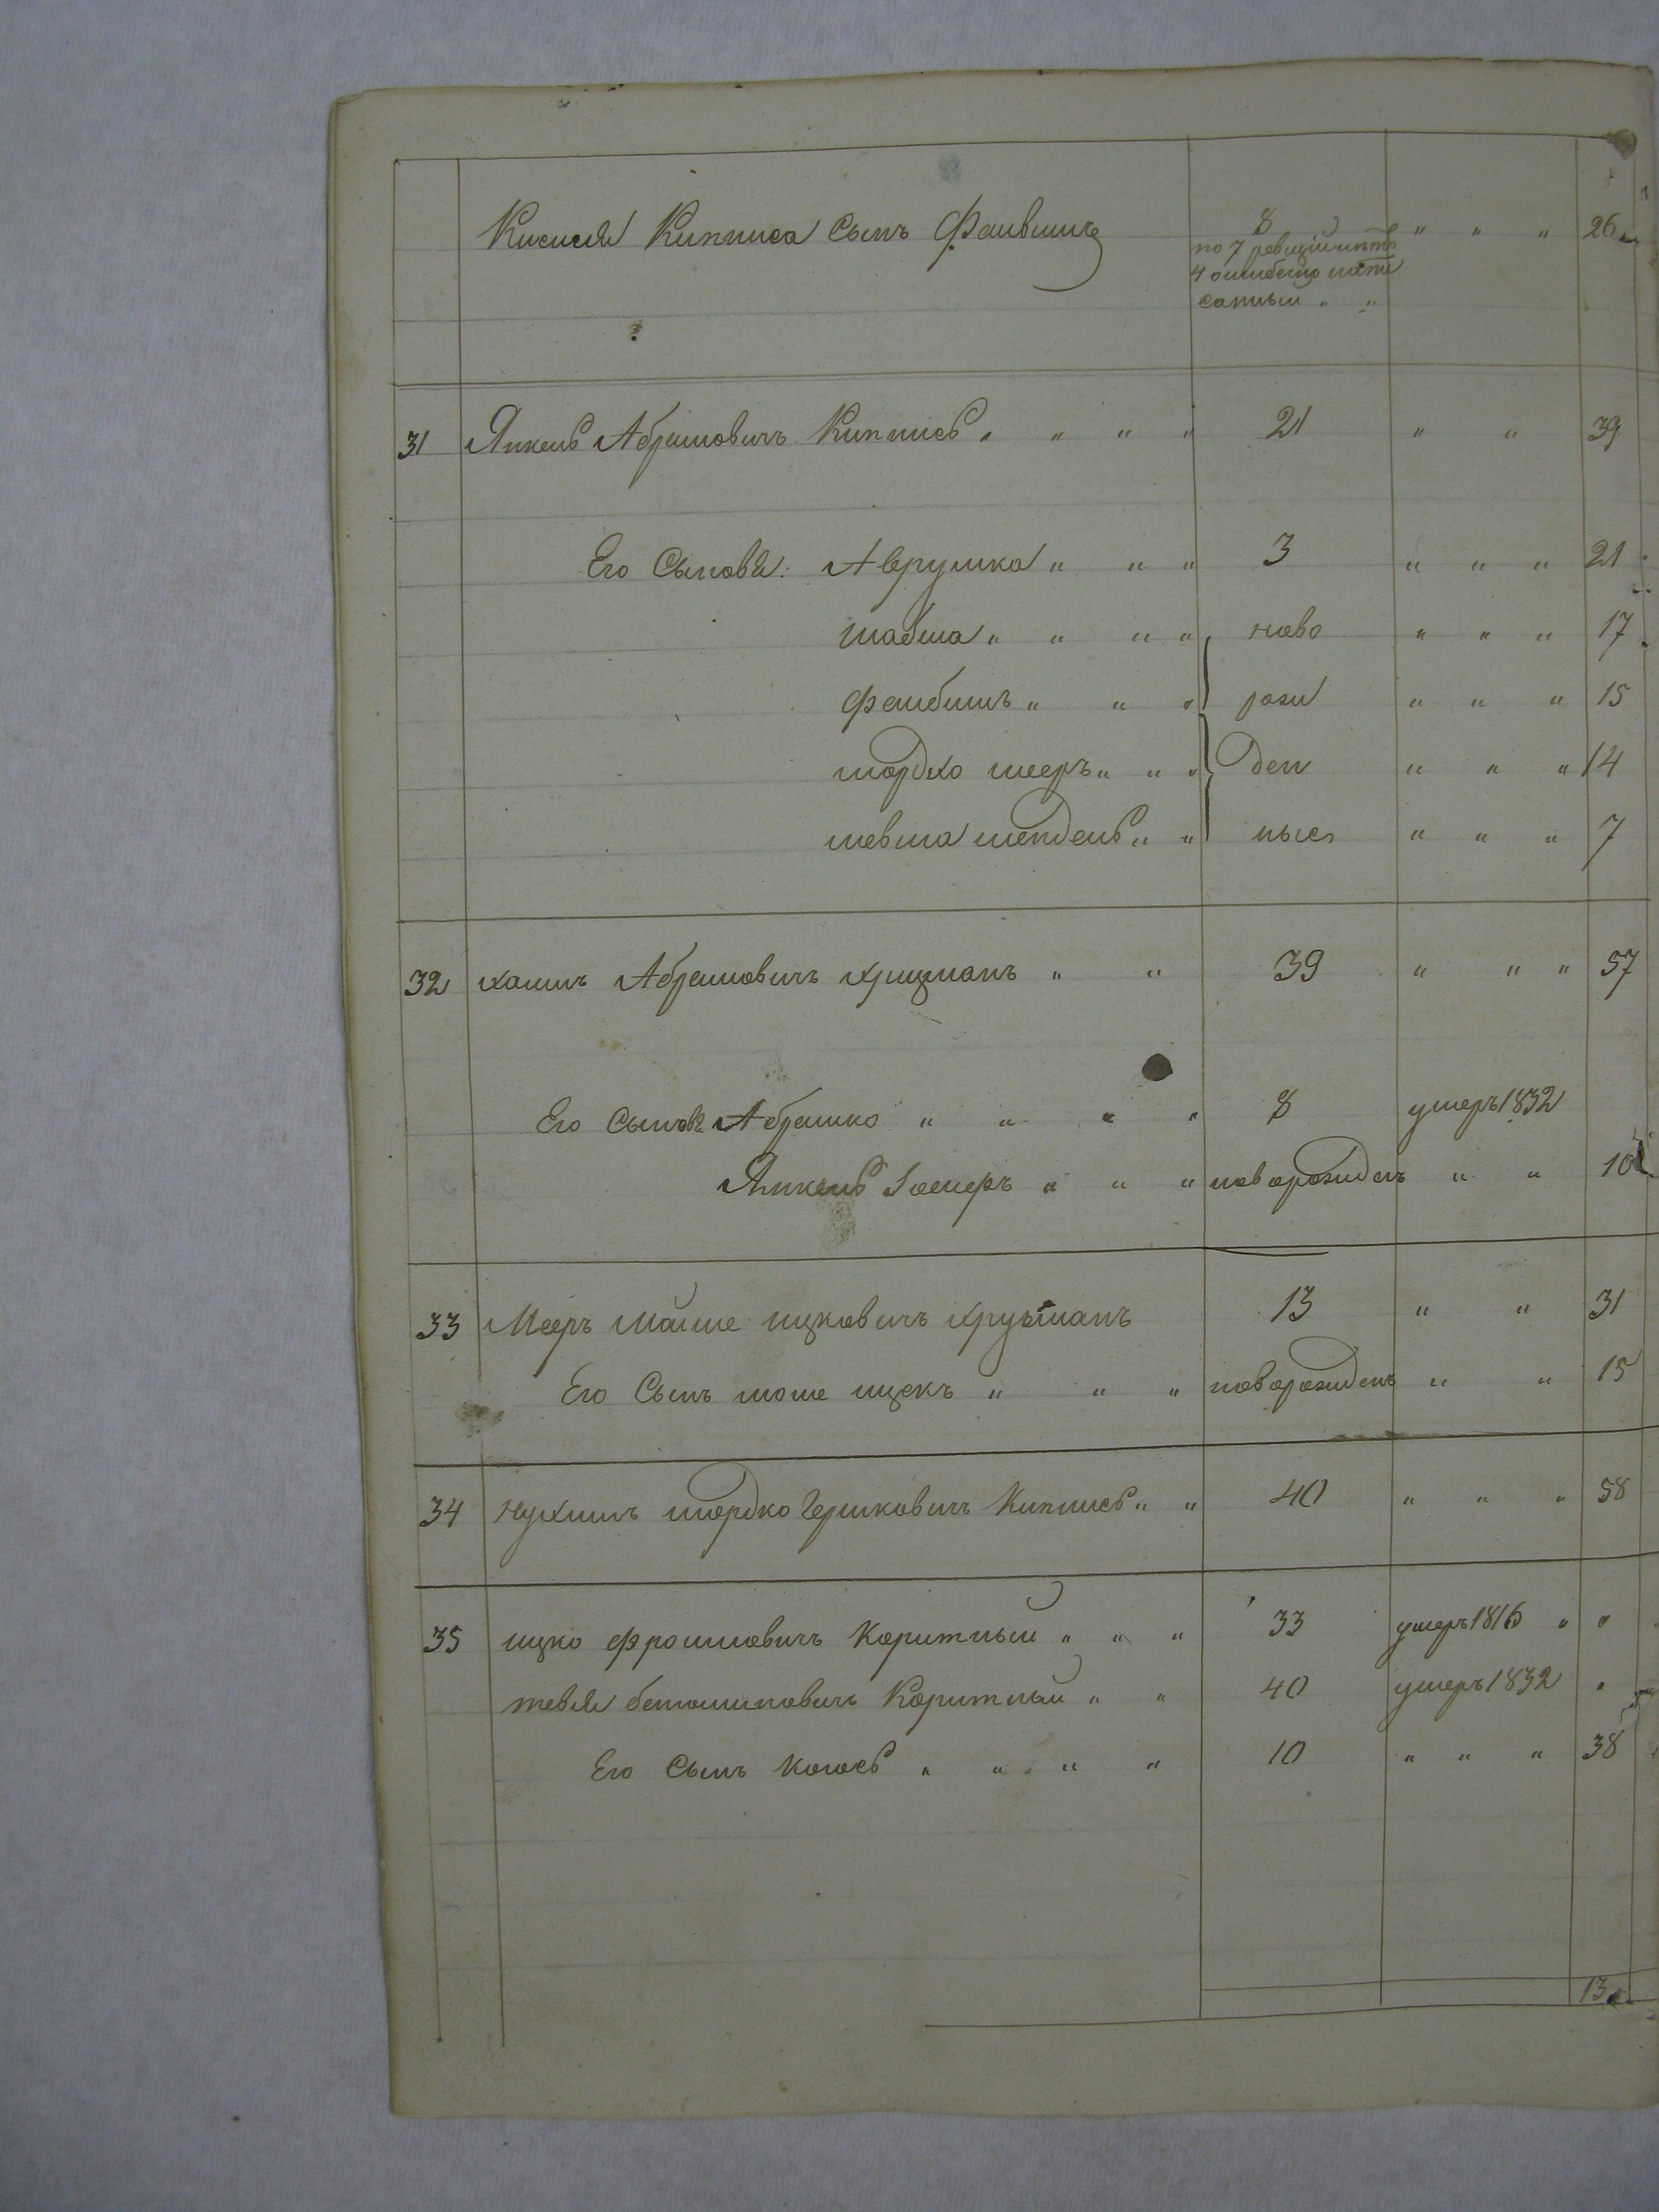 Кисиля Кипниса Сынъ Фаивишъ 8 " " " 26
по 7 ревизіи
4 ошибкою напи
санный " "
31 Янкель Абрамовичъ Кипнисъ " " " " 21 " " 39
Его Сыновя: Аврумко " " " 3 " " " 21
шабша " " " " ново " " " 17
фаибишъ " " " рож " " " 15
мордко мееръ " " " ден " " " 14
мендель " " ные " " " 7
32 хаимъ Абрамовичъ крицманъ " " 39 " " " 57
Его Сыновя Абрамко " " " " 8 умеръ 1832
Янкель " " " новорожденъ " " 10
33 Мееръ Моише ицковичъ 13 " " 31
Его Сынъ моше ицекъ " " " новорожденъ " " 15
34 Нухимъ мордко Гершковичъ Кипнисъ " " 40 " " " 58
35 ицко фроимовичъ Коритный " " " 33 умеръ 1816 " "
тевия бениоминовичъ Коритный " " 40 умеръ 1832 "
Его Сынъ " " " " 10 " " " 38
13